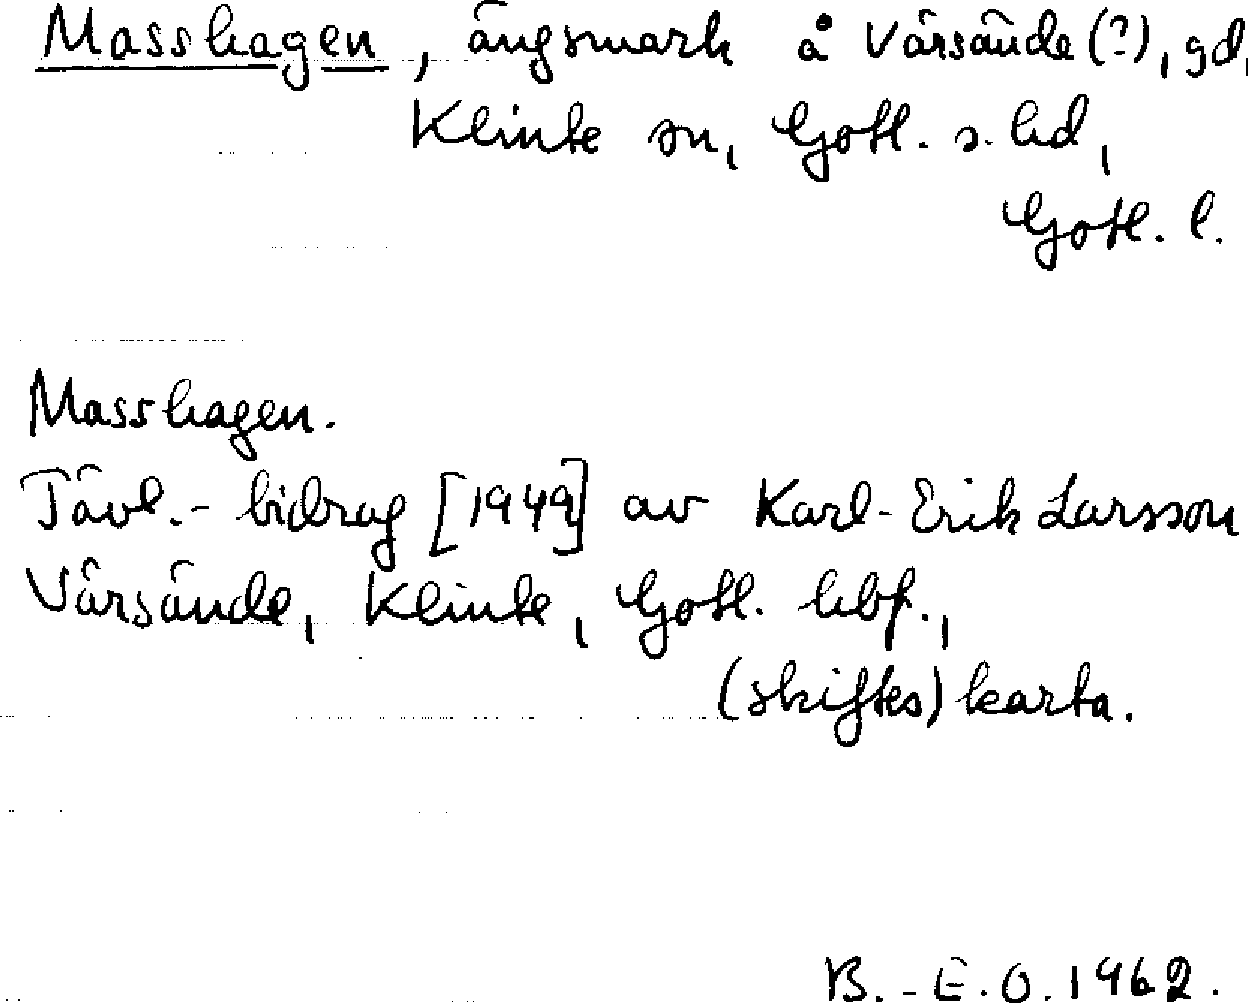 Masshagen, ängsmark å Värsände(?), gd,
Klinte sn, Gotl. s. hd,
Gotl. l.
Masshagen.
Tävl.-bidrag [1949] av Karl-Erik Larsson
Värsände, Klinte, Gotl. hbf.,
(skiftes)karta.
B.-E.O. 1962.